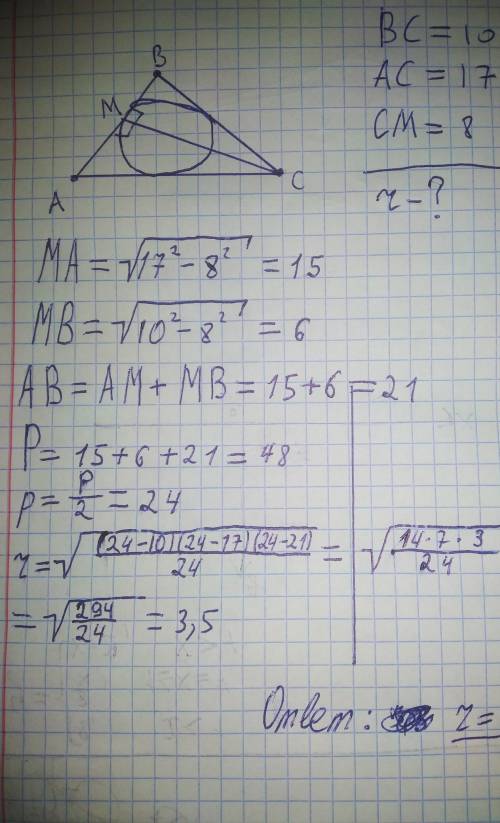 B
M
A
C
BC = 10
AC = 17
CM = 8
r - ?
MA = √(17² - 8²) = 15
MB = √(10² - 8²) = 6
AB = AM + MB = 15 + 6 = 21
P = 15 + 6 + 21 = 48
p = P/2 = 24
r = √((24-10)(24-17)(24-21)/24) = √(14 · 7 · 3/24)
= √(294/24) = 3,5
Ответ: r =